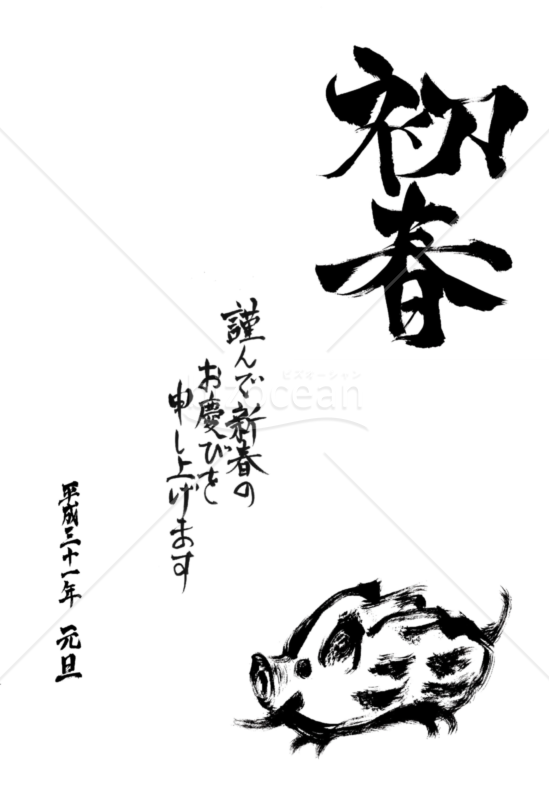 初春
謹んで新春の
お慶びを
申し上げます
平成三十一年 元旦
ビズオーシャン
bizocean